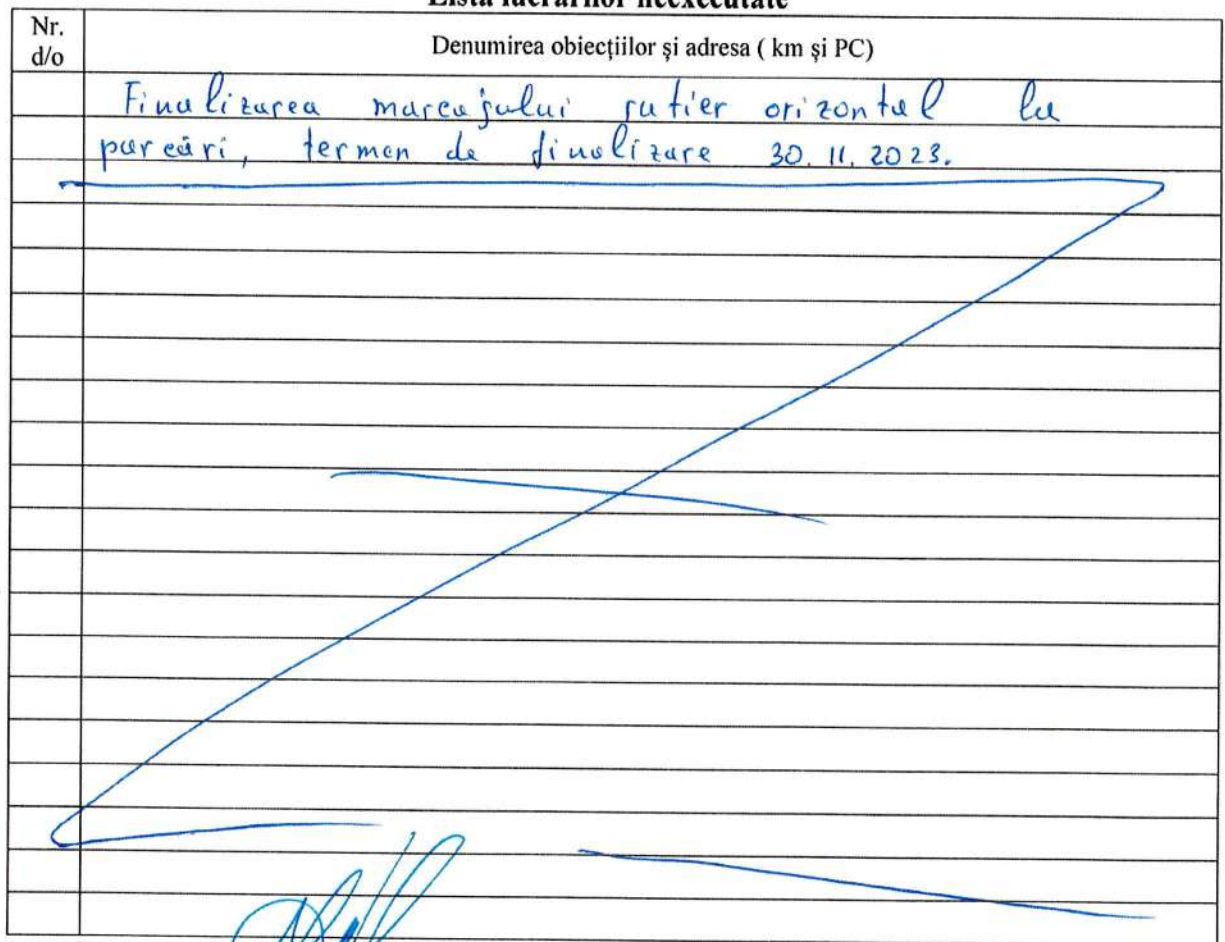 Lista lucrărilor neexecutate
Nr.
d/o
Denumirea obiecțiilor și adresa ( km și PC)
Finalizarea marcajului rutier orizontal la
parcări, termen de finalizare 30.11.2023.